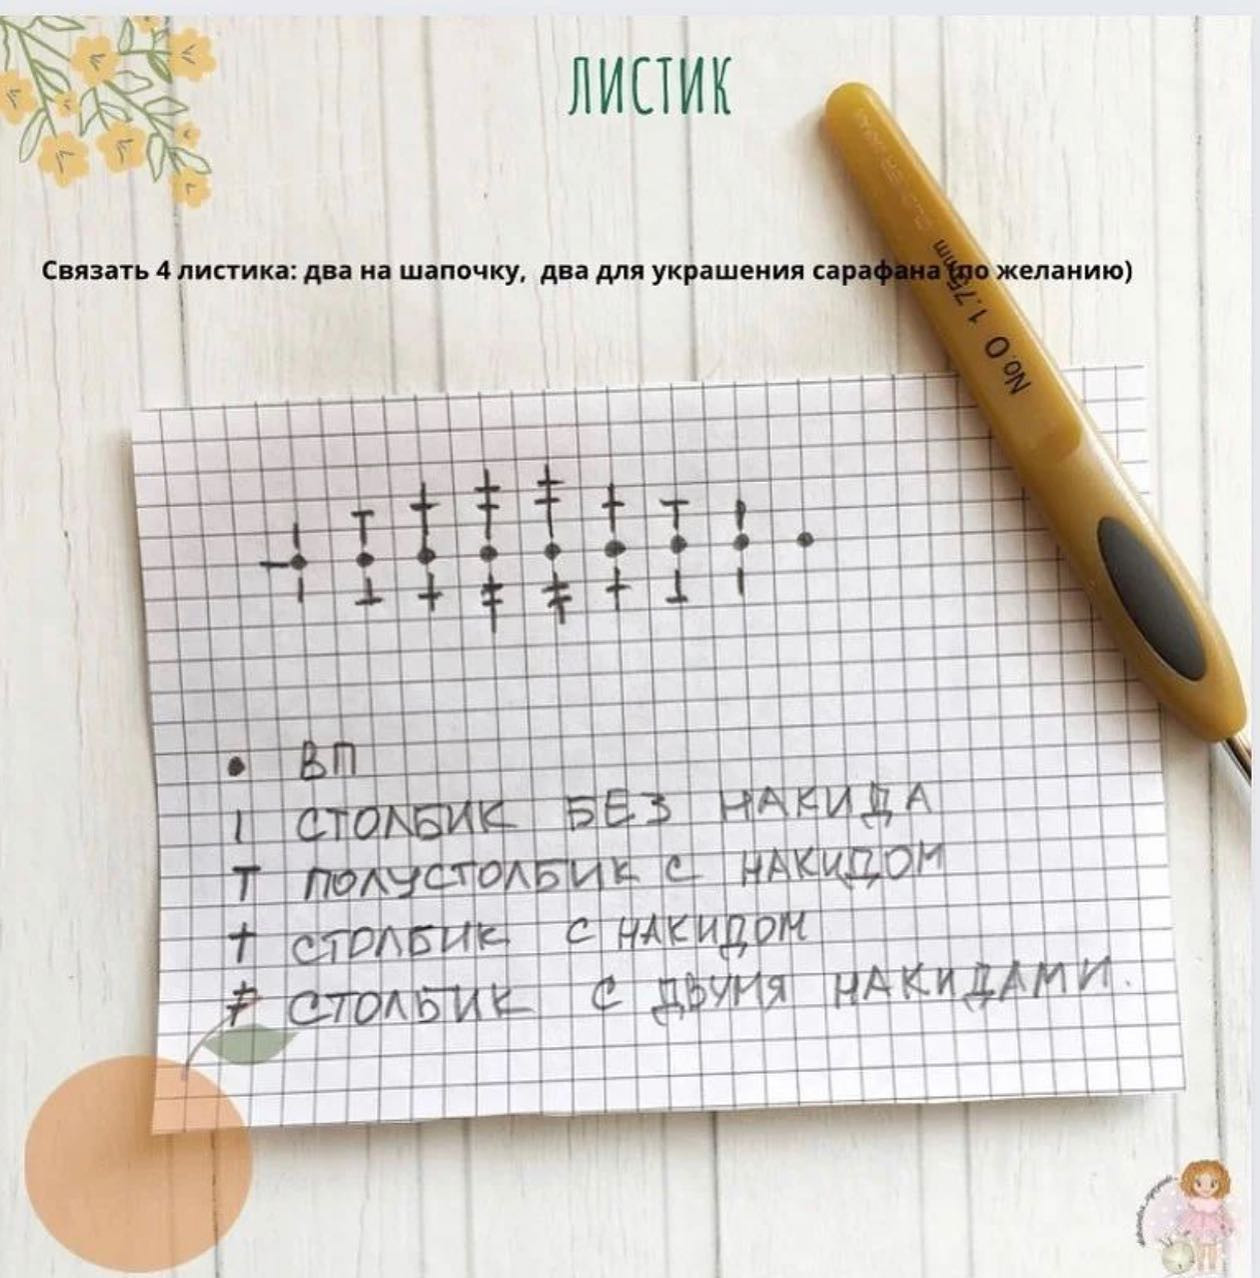 ЛИСТИК
Связать 4 листика: два на шапочку, два для украшения сарафана (по желанию)
No.0 1.75mm
ВП
СТОЛБИК БЕЗ НАКИДА
Т ПОЛУСТОЛБИК С НАКИДОМ
СТОЛБИК С НАКИДОМ
СТОЛБИК С ДВУМЯ НАКИДАМИ.